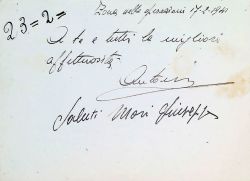 23=2=
Zona nelle operazioni 17-2-1941
A te e tutti la migliori
affettuosità
Antonio
Saluti Mori Giuseppe